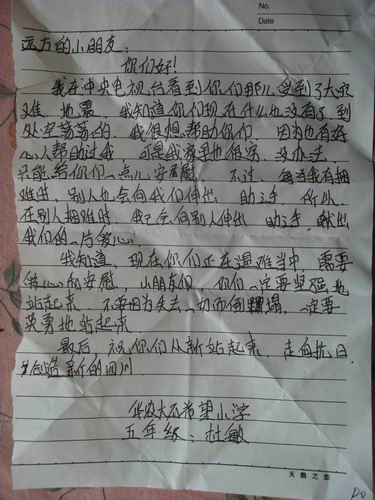 No.
Date
远方的小朋友:
你们好!
我在中央电视台看到你们那儿受到了大灾
难 地震 我知道你们现在什么也没有了 到
处空荡荡的 我很想帮助你们 因为也有好
心人帮助过我 可是我家里也很穷 没办法
只能给你们一点儿安慰 不过 每当我有困
难时 别人也会向我们伸出 助手 所以
在别人困难时 我也会向别人伸出 助手 献出
我们的一片爱心
我知道 现在你们正在遇难当中 需要
爱心和安慰 小朋友们 你们一定要坚强地
站起来 不要因为失去一切而倒蹋 一定要
英勇地站起来
最后 祝你们从新站起来 走向抗日
创造新的四川
希望小学
五年级:杜敏
天鹅之恋